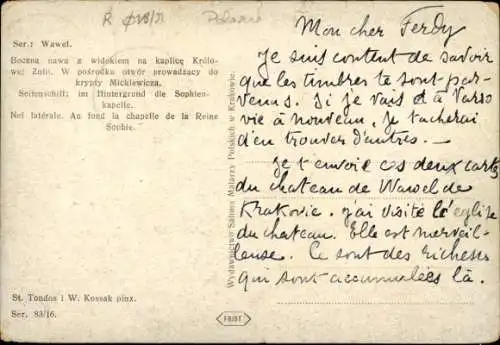 R 
Ser.: Wawel.
Boczna nawa z widokiem na kaplicę Królo-
wej Zofii. W pośrodku otwór prowadzący do
krypty Mickiewicza.
Seitenschiff; im Hintergrund die Sophien-
kapelle.
Nef latérale. Au fond la chapelle de la Reine
Sophie.
St. Tondos i W. Kossak pinx.
Ser. 83/16.
Wydawnictwo Salonu Malarzy Polskich w Krakowie.
FRIST
Mon cher Ferdy
Je suis content de savoir
que les timbres te sont par-
venus. Si je vais à Varso
vie à nouveau, je tacherai
d'en trouver d'autres. —
Je t'envoie ces deux cartes
du chateau de Wawel de
Krakovie. j'ai visité l'église
du chateau. Elle est merveil-
leuse. Ce sont des richesses
qui sont accumulées là.